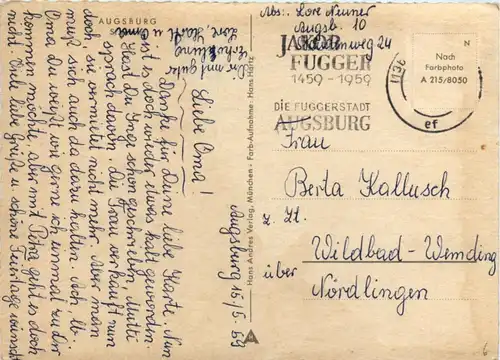 AUGSBURG
Augsburg 15/5. 59
Liebe Oma!
Danke für Deine liebe Karte. Nun
ist es doch wieder etwas kalt geworden.
Hast Du Inge schon geschrieben. Mutti
sprach davon. Die Frau verkauft nun
doch, sie vermietet nicht mehr. Aber man
muß sich auch da dazu halten. Ach, lb.
Oma Du weißt wie gerne ich einmal zu Dir
kommen möchte, aber mit Petra geht es doch
nicht. Viel liebe Grüße u. schöne Feiertage wünscht
Dir und gute
Erholung
Lore, Karlt u.
Hans Andres Verlag, München · Farb-Aufnahme: Hans Hartz
Abs: Lore Neuner
Augsb. 10
weg 24
JAKOB
FUGGER
1459-1959
DIE FUGGERSTADT
AUGSBURG
ef
N
Nach
Farbphoto
A 215/8050
Frau
Berta Kallusch
z. Zt.
Wildbad-Wemding
über
Nördlingen
A
6